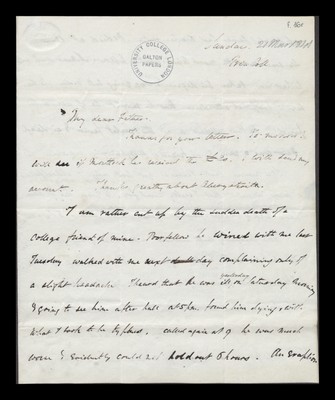 f 86r
UNIVERSITY COLLEGE LONDON
GALTON PAPERS
Sunday
My dear Father
Thanks for your letter. To-
will of Matlock has received the I will send my
account. Thanks greatly about
I am rather cut up by the sudden death of a
College friend of mine. Poor fellow he wined with me last
Tuesday walked with me next day complaining only of
a slight headache. I heard that he was ill on Saturday morning
yesterday
& going to see him after hall at 5 p.m. found him dying, with
what I took to be typhus. called again at 9 he was much
worse & evidently could not hold out 6 hours. An eruption